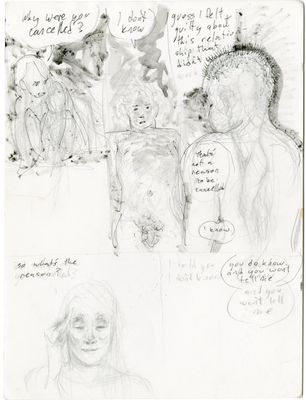 why were you
cancelled?
I don't
know
guess I felt
guilty about
this relation
ship that
didn't
work
that's
not a
reason
to be
cancelled
I know
so what's the
reason?
I told you
don't know
you do know
and you wont
tell me
and you
wont tell
me